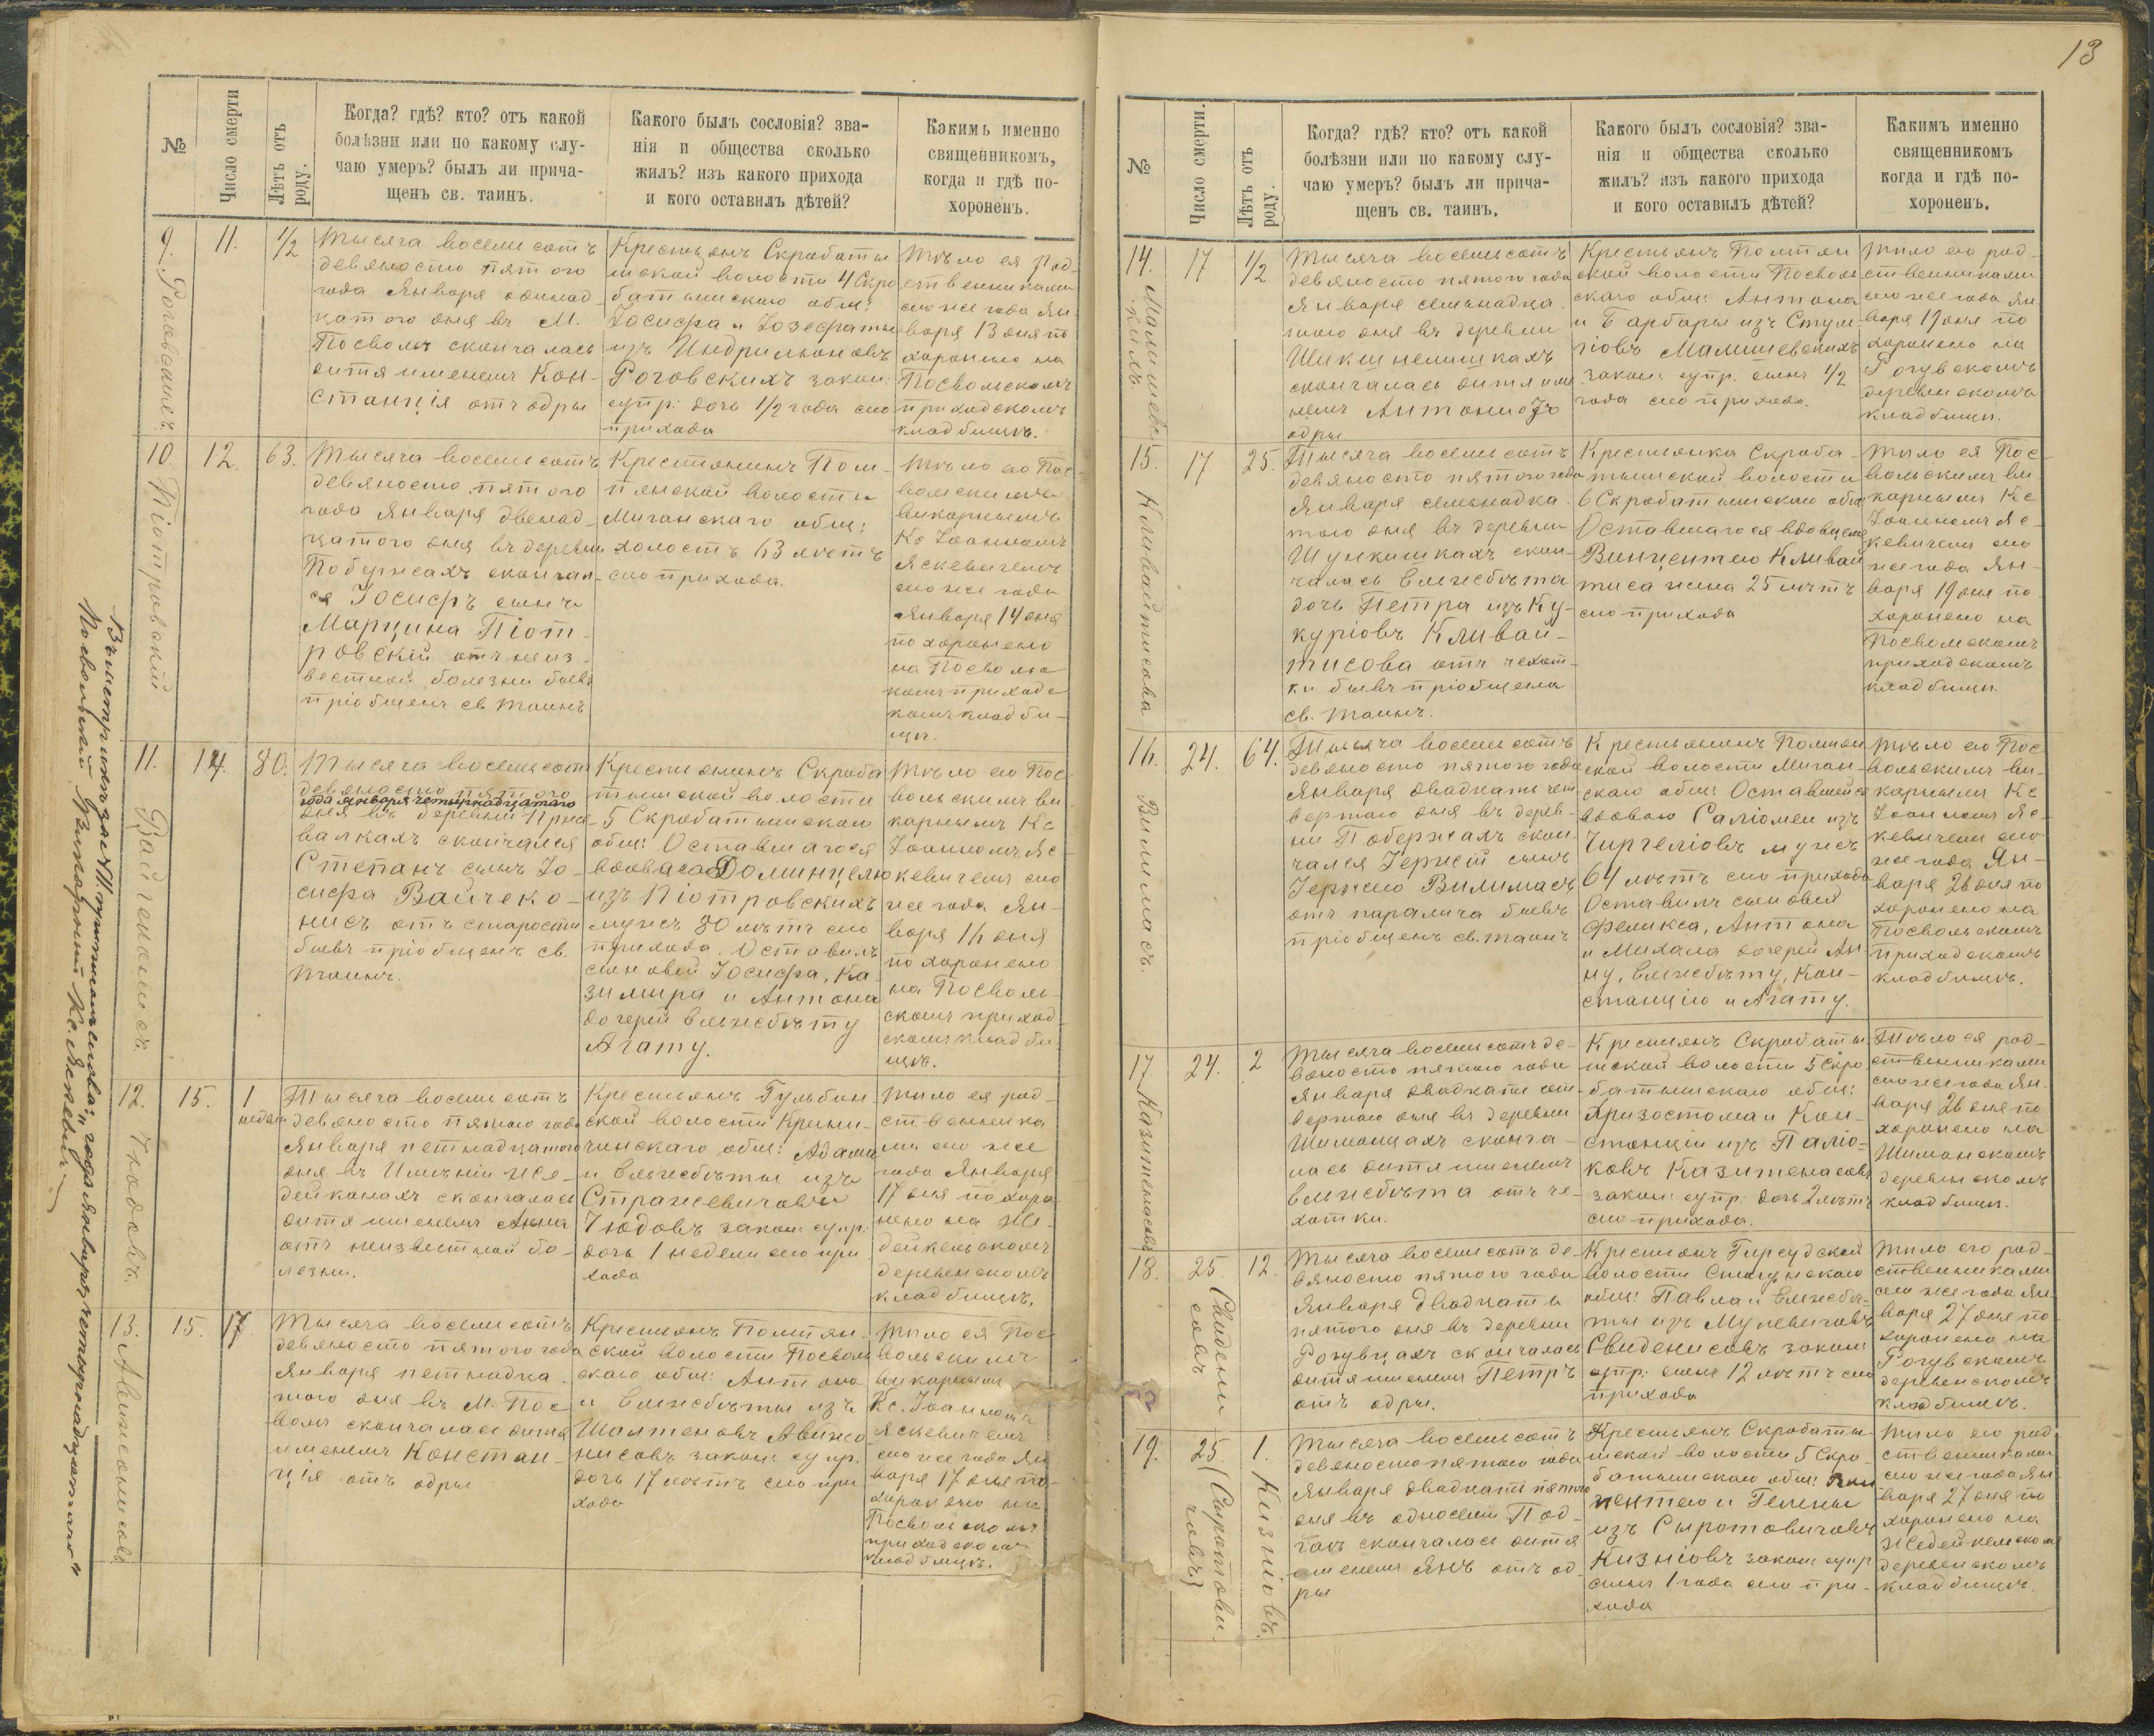 13
№
Число смерти
Лѣтъ отъ роду.
Когда? гдѣ? кто? отъ какой
болѣзни или по какому слу-
чаю умеръ? былъ ли прича-
щенъ св. таинъ.
Какого былъ сословія? зва-
нія и общества сколько
жилъ? изъ какого прихода
и кого оставилъ дѣтей?
Какимъ именно
священникомъ,
когда и гдѣ по-
хороненъ.
9.
11.
1/2
Тысяча восемь сотъ
девяносто пятого
года Января одинад-
цатого дня въ М.
Посволь скончалась
дитя именемъ Кон-
станція отъ одры
Крестьянъ Скробаты
шской волости 4 Скро
батышскаго общ:
Іосифа и Іозефаты
изъ Индрильоновъ
Роговскихъ закон:
супр: дочь 1/2 года сего
прихода
Тѣло ея род-
ственниками
сего же года Ян-
варя 13 дня по
хоронено на
Посвольскомъ
приходскомъ
кладбищѣ.
10.
Піотровскій
12.
63.
Тысяча восемь сотъ
девяносто пятого
года Января двенад-
цатого дня въ деревни
Побержахъ скончал-
ся Іосифъ сынъ
Марцина Піот-
ровскій отъ неиз-
вестной болезни бывъ
пріобщенъ св. таинъ
Крестянинъ Пом-
пянской волости
Миганскаго общ:
холостъ 63 лѣтъ
сего прихода.
Тѣло его Пос-
вольскимъ
викарнымъ
Кс Іоанномъ
Яскевичемъ
сего же года
Января 14 дня
похоронено
на Посволь
комъ приходс
комъ кладби-
щѣ.
11.
14.
80.
Тысяча восемь сотъ
девяносто пятого
года января четырнадцатого
дня въ деревни
валкахъ скончался
Степанъ сынъ Іо-
сифа Вайчеко-
нисъ отъ старости
бывъ пріобщенъ св.
таинъ.
Крестьянинъ Скроба
тышской волости
5 Скробатышскаго
общ: Оставшагося
вдовою Доминцелю
изъ Піотровскихъ
мужъ 80 лѣтъ сего
прихода. Оставилъ
сыновей Іосифа, Ка
зимира и Антона
дочерей Елжебѣту
Агату.
Тѣло его Пос
вольскимъ ви
карнымъ Кс
Іоанномъ Яс-
кевичемъ сего
же года Ян-
варя 16 дня
похоронено
на Посволь-
скомъ приход-
скомъ кладби-
щѣ.
12.
Чюдовъ.
15.
1
недели
Тысяча восемь сотъ
девяносто пятого года
Января петнадцатого
дня въ Имѣніи Же-
дейканахъ скончалась
дитя именемъ Анна
отъ неизвестной бо-
лезни.
Крестьянъ Гульбин
ской волости Крини-
чинскаго общ: Адама
и Елжебѣты изъ
Стражевичовъ
Чюдовъ закон. супр:
дочь 1 недели сего при
хода
Тѣло ея род-
ственника
ми сего же
года Января
17 дня похоро-
нено на Же-
дейкельскомъ
деревенскомъ
кладбищѣ.
13.
15.
17
Тысяча восемь сотъ
девяносто пятого года
Января петнадца-
того дня въ М. Пос
воль скончалась дитя
именемъ Констан-
ція отъ одры
Крестьянъ Помпян-
ской волости Посволь
скаго общ: Антона
и Елжебѣты изъ
Шалтеновъ Авижо
нисовъ закон: супр.
дочь 17 лѣтъ сего при
хода
Тѣло ея Пос
вольскимъ
викарнымъ
Кс. Іоанномъ
Яскевичемъ
сего же года Ян
варя 17 дня по-
хоронено на
Посвольскомъ
приходскомъ
кладбищѣ.
Посвольскій Викарный Кс. Яскевичъ
№
Число смерти.
Лѣтъ отъ роду.
Когда? гдѣ? кто? отъ какой
болѣзни или по какому слу-
чаю умеръ? былъ ли прича-
щенъ св. таинъ.
Какого былъ сословія? зва-
нія и общества сколько
жилъ? изъ какого прихода
и кого оставилъ дѣтей?
Какимъ именно
священникомъ
когда и гдѣ по-
хороненъ.
14.
17
1/2
Тысяча восемь сотъ
девяносто пятого года
Января семьнадца-
того дня въ деревни
Шикшнелишкахъ
скончалась дитя име
немъ Антоній отъ
одры.
Крестьянъ Помпян
ской волости Посволь
скаго общ: Антона
и Барбары изъ Стум-
ріовъ Малишевскихъ
закон: супр. сынъ 1/2
года сего прихода.
Тѣло его род-
ственниками
сего же года Ян
варя 19 дня по
хоронено на
Рогувскомъ
деревенскомъ
кладбищи.
15.
Кливайтисова
17
25.
Тысяча восемь сотъ
девяносто пятого года
Января семьнадца-
того дня въ деревни
Шункишкахъ скон-
чалась Елжебѣта
дочь Петра изъ Ку-
куріовъ Кливай-
тисова отъ чехот-
ки бывъ пріобщена
св. таинъ.
Крестьянка Скроба-
тышской волости
6 Скробатышскаго общ:
Оставшагося вдовцемъ
Винцентего Кливай
тиса жена 25 лѣтъ
сего прихода
Тѣло ея Пос
вольскимъ ви
карнымъ Кс
Іоанномъ Яс-
кевичемъ сего
же года Ян-
варя 19 дня по-
хоронено на
Посвольскомъ
приходскомъ
кладбищи.
16.
Вилимасъ.
24.
64.
Тысяча восемь сотъ
девяносто пятого года
Января двадцать чет
вертаго дня въ дерев-
ни Побержахъ скон
чался Іержій сынъ
Іержего Вилимасъ
отъ паралича бывъ
пріобщенъ св. таинъ
Крестьянинъ Помпян
ской волости Миган-
скаго общ: Оставшейся
вдовою Саліомеи изъ
Чиргеліовъ мужъ
64 лѣтъ сего прихода
Оставилъ сыновей
Феликса, Антона
и Михала дочерей Ан
ну, Елжебѣту, Кон-
станцію и Агату.
Тѣло его Пос
вольскимъ ви-
карнымъ Кс
Іоанномъ Яс-
кевичемъ сего
же года Ян-
варя 26 дня по
хоронено на
Посвольскомъ
приходскомъ
кладбищѣ.
17
24.
2
Тысяча восемь сотъ де-
вяносто пятого года
Января двадцать чет
вертаго дня въ деревни
Шиманцахъ сконча-
лась дитя именемъ
Елжебѣта отъ че-
хотки.
Крестьянъ Скробаты
шской волости 5 Скро
батышскаго общ:
Хризостома и Кон-
станціи изъ Паліо-
ковъ Казитенасовъ
закон: супр: дочь 2 лѣтъ
сего прихода.
Тѣло ея род-
ственниками
сего же года Ян.
варя 26 дня по
хоронено на
Шиманскомъ
деревенскомъ
кладбищи.
18.
25.
12.
Тысяча восемь сотъ де-
вяносто пятого года
Января двадцать
пятого дня въ деревни
Рогувцахъ скончалась
дитя именемъ Петръ
отъ одры.
Крестьянъ Гирсудской
волости
общ: Павла и Елжебѣ-
ты изъ Мулевичовъ
Свиденисовъ закон:
супр: сынъ 12 лѣтъ сего
прихода
Тѣло его род-
ственниками
сего же года Ян
варя 27 дня по
хоронено на
Рогувскомъ
деревенскомъ
кладбищѣ.
19.
25.
1.
Кизніовъ.
Тысяча восемь сотъ
девяносто пятого года
Января двадцать пятого
дня въ односели Под-
гаю скончалась дитя
именемъ Янъ отъ од-
ры
Крестьянъ Скробаты-
шской волости 5 Скро-
батышскаго общ: Вин
центего и Гелены
изъ Сыротовичовъ
Кизніовъ закон: супр
сынъ 1 года сего при-
хода
Тѣло его род
ственниками
сего же года Ян
варя 27 дня по
хоронено на
Жедейкельскомъ
деревенскомъ
кладбищѣ.